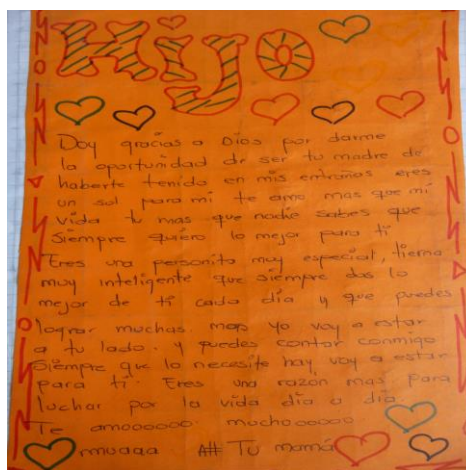 Hijo
Doy gracias a Dios por darme
la oportunidad de ser tu madre de
haberte tenido en mis entrañas eres
un sol para mi te amo mas que mi
vida tu mas que nadie sabes que
Siempre quiero lo mejor para ti
Eres una personita muy especial, tierna
muy inteligente que siempre das lo
mejor de ti cada día y que puedes
lograr muchas. mas yo voy a estar
a tu lado. y puedes contar conmigo
Siempre que lo necesite hay voy a estar
para ti. Eres una razon mas para
luchar por la vida día a día
Te amoooooo muchooooo
muaaa Att Tu mamá